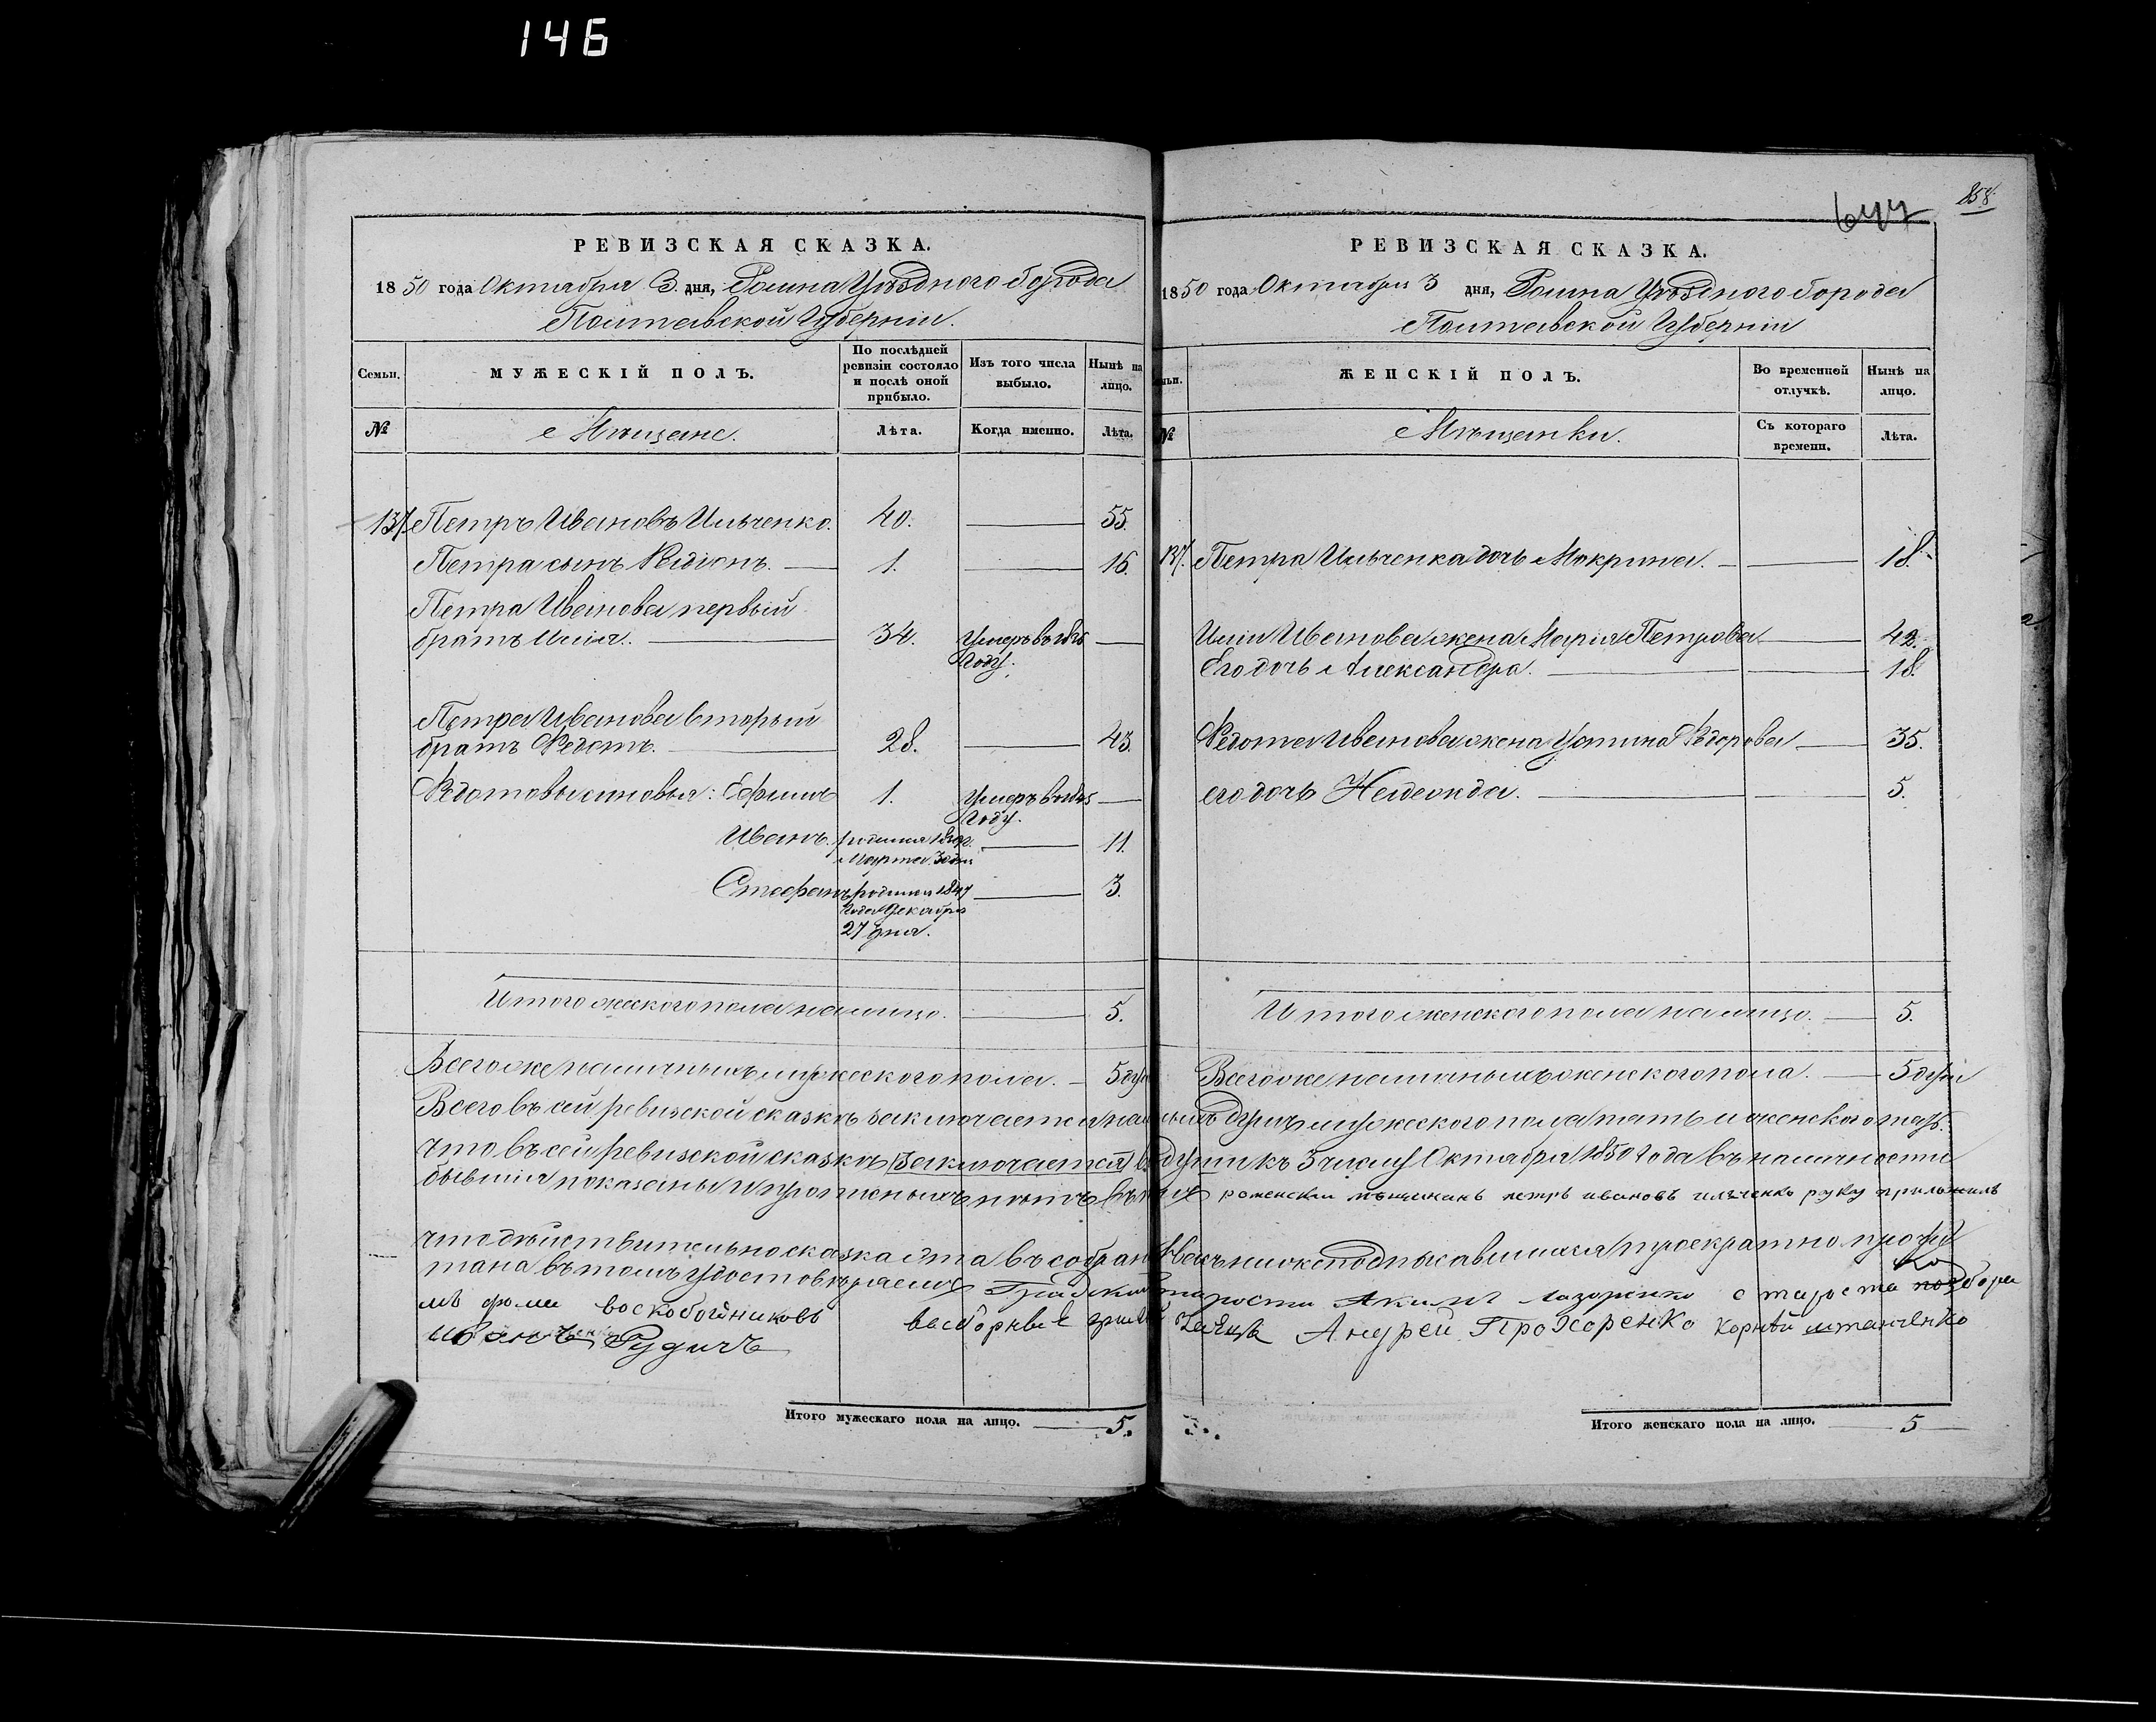 146
РЕВИЗСКАЯ СКАЗКА.
1850 года Октября 3 дня, Ромна Уѣздного Города
Полтавской Губерніи.
Семьи.
МУЖЕСКІЙ ПОЛЪ.
По послѣдней ревизіи состояло и послѣ оной прибыло.
Изъ того числа выбыло.
Нынѣ на лицо.
№
Мѣщане.
Лѣта.
Когда именно.
Лѣта.
137. Петръ Ивановъ Ильченко. 40. 55.
Петра сынъ Родіонъ. 1. 16.
Петра Иванова первый
братъ Илія. 34. Умеръ въ
Году.
Петра Иванова вторый
братъ Федотъ. 28. 43.
Федотовы сыновья: Ефимъ 1. Умеръ въ
Году.
Иванъ. родился
Марта 30 дня 11.
Стефанъ родился 1847
Года Декабря
27 дня. 3.
Итого мужеского пола на лицо. 5.
Всего же наличныхъ мужеского пола. 5 душ
РЕВИЗСКАЯ СКАЗКА.
1850 года Октября 3 дня, Ромна Уѣздного Города
Полтавской Губерніи
ЖЕНСКІЙ ПОЛЪ.
Во временной отлучкѣ.
Нынѣ на лицо.
№
Мѣщанки.
Съ котораго времени.
Лѣта.
137. Петра Ильченка дочь Макрина. 18.
Иліи Иванова жена Марія Петрова 42.
Его дочь Александра. 18.
Федота Иванова жена Устина Федорова 35.
его дочь 5.
Итого женского пола на лицо. 5.
Всего же наличныхъ женского пола. 5 душъ
Всего въ сей ревизской сказкѣ заключается душъ мужеского пола пять и женского пять.
Что въ сей ревизской сказкѣ заключается всѣ души къ 3 числу Октября 1850 Года въ наличности
бывшія показаны и прописныхъ нѣтъ въ томъ роменскій мѣщанинъ петръ ивановъ илченко руку приложилъ
что дѣйствительно сказка эта въ собраніи насъ нижеподписавшихся троекратно прочи
тана въ томъ удостовѣряемъ Градскій староста Акимъ лазоренко староста
воскобойниковъ выборные Андрей Прохоренко корнѣй
иванъ Рудичъ
Итого мужескаго пола на лицо. 5.
Итого женскаго пола на лицо. 5